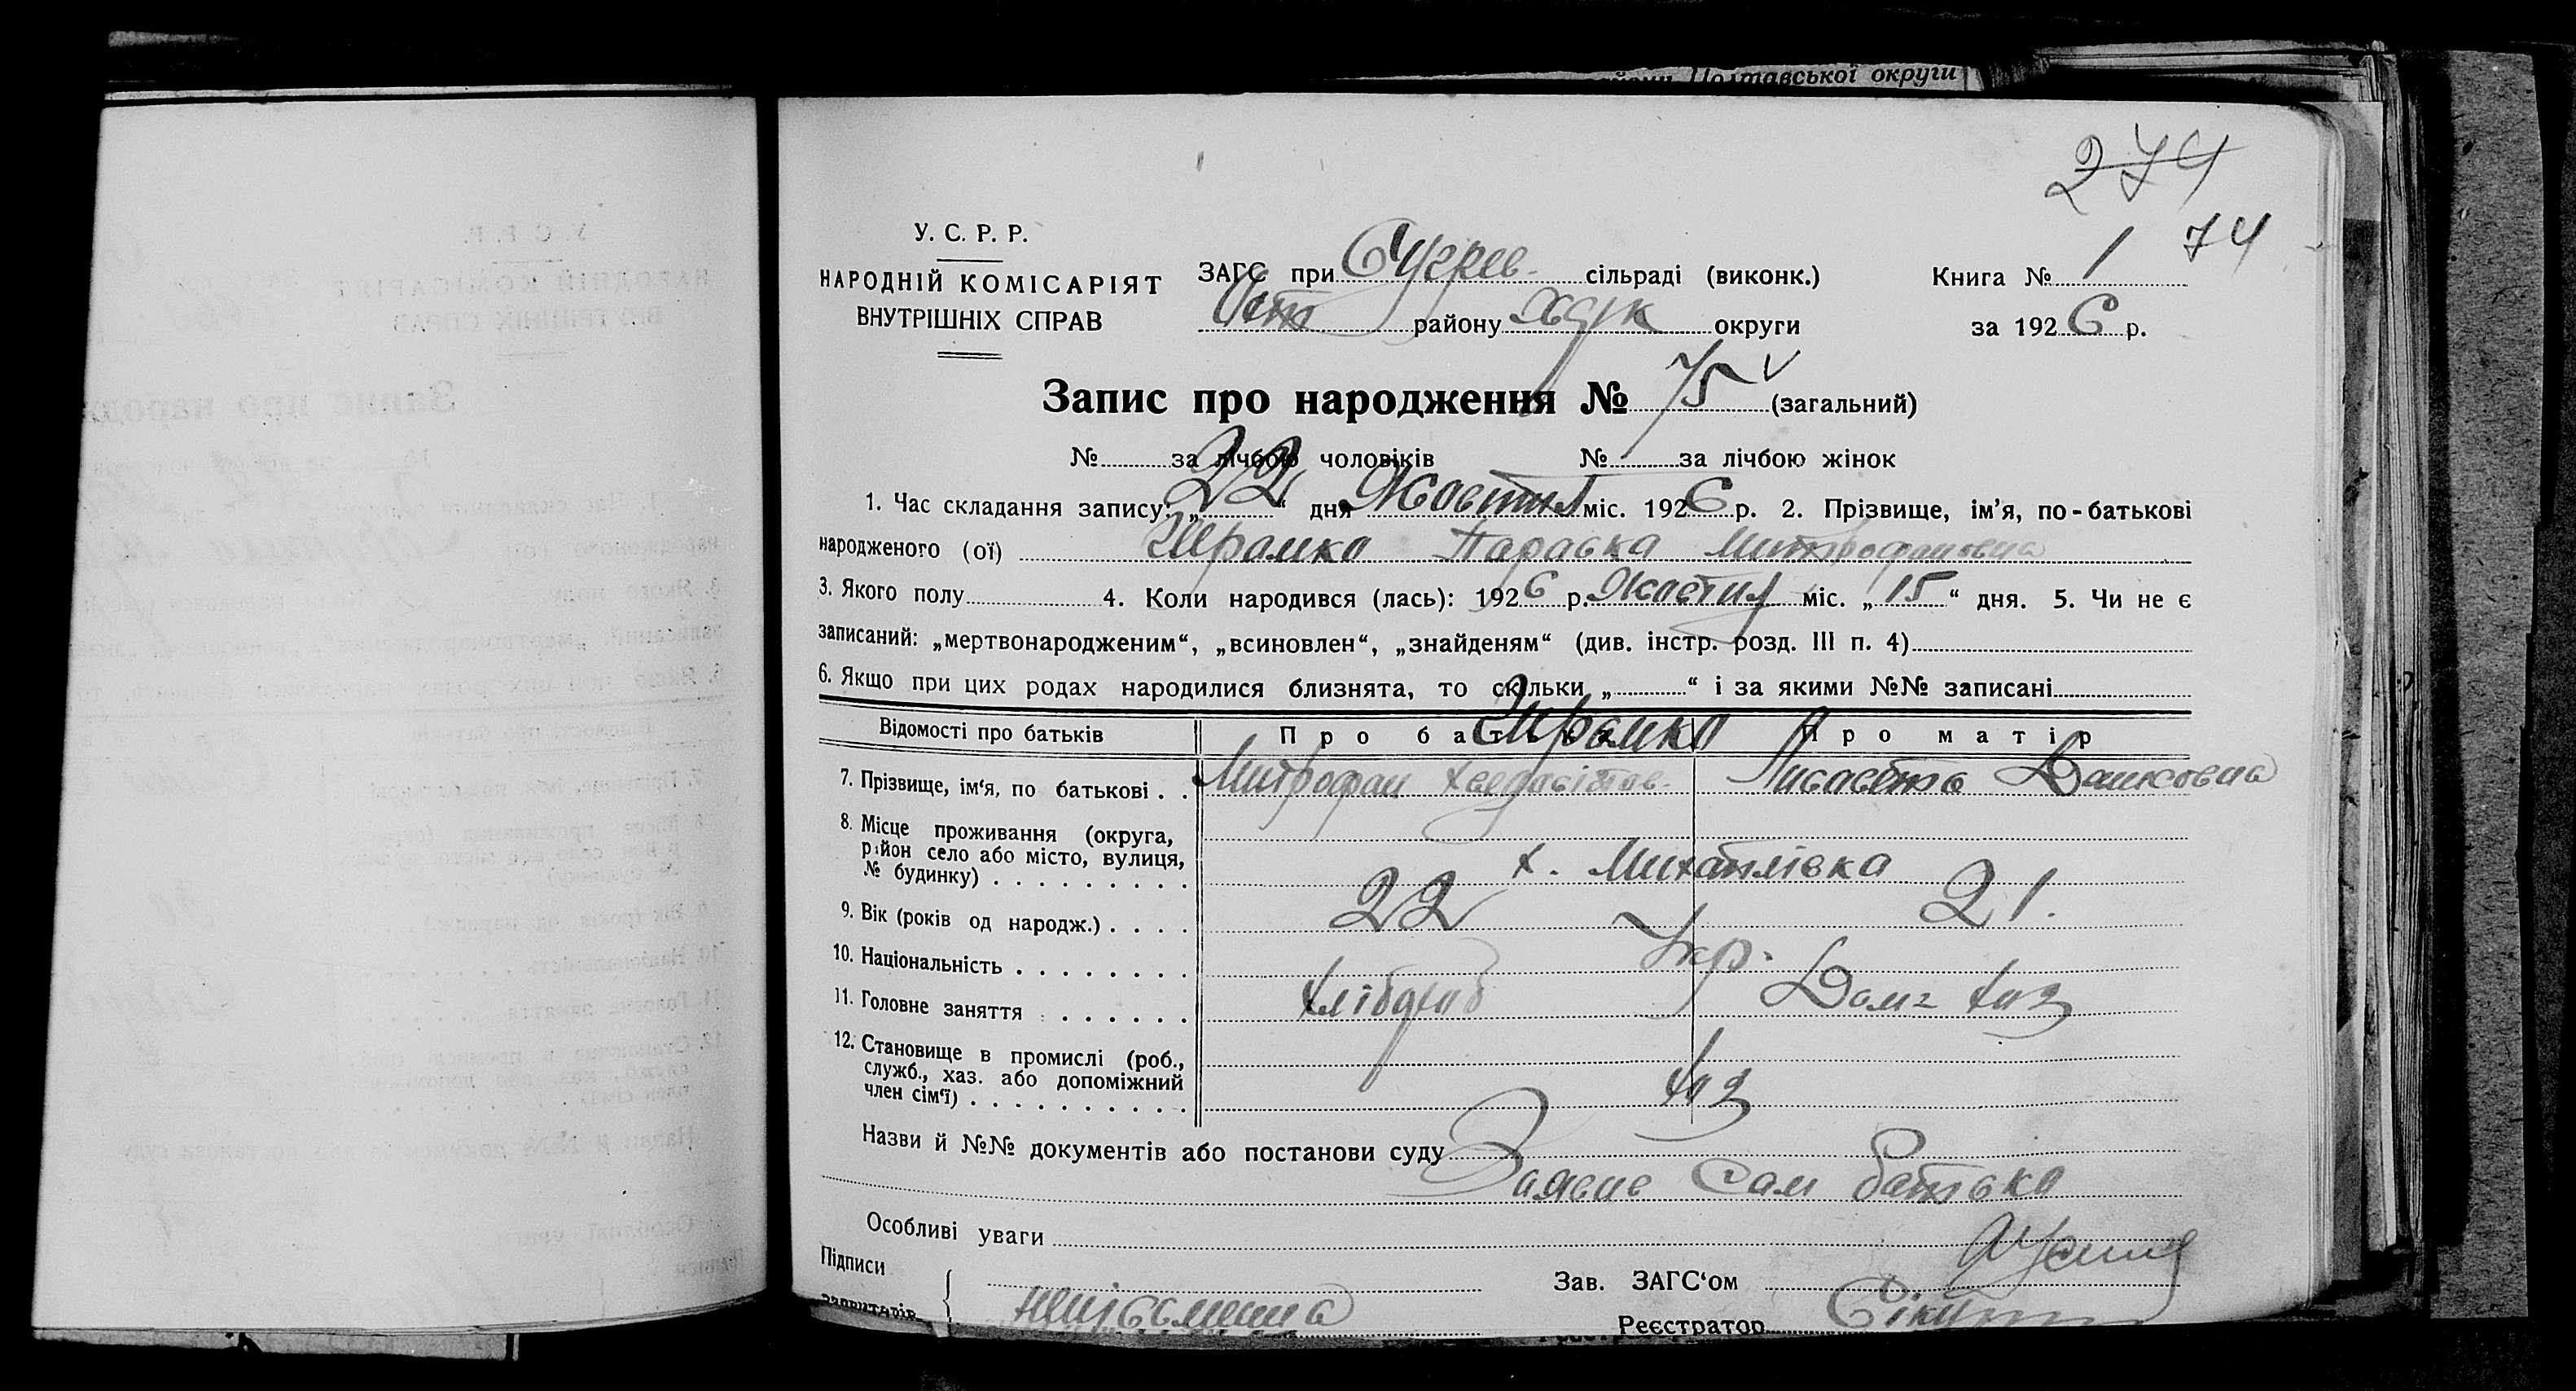 Полтавської округи
274
74
У. С. Р. Р.
НАРОДНІЙ КОМІСАРІЯТ
ВНУТРІШНІХ СПРАВ
ЗАГС при сільраді (виконк.)
району округи
Книга № 1
за 1926 р.
Запис про народження № 75 (загальний)
№ за лічбою чоловіків № за лічбою жінок
1. Час складання запису: „22“ дня Жовтня міс. 1926 р. 2. Прізвище, ім’я, по-батькові
народженого (ої) Шрамко Параска Митрофановна
3. Якого полу 4. Коли народився (лась): 1926 р. Жовтня міс. „15“ дня. 5. Чи не є
записаний: „мертвонародженим“, „всиновлен“, „знайденям“ (див. інстр. розд. III п. 4)
6. Якщо при цих родах народилися близнята, то скільки „ “ і за якими №№ записані
Відомості про батьків Про батька Про матір
Шрамко
7. Прізвище, ім‘я, по батькові . . Митрофан
8. Місце проживання (округа,
район село або місто, вулиця,
№ будинку) . . . . . . . . . х. Михайлівка
9. Вік (років од народж.) . . . . 22 21.
10. Національність . . . . . . . . Укр.
11. Головне заняття . . . . . . Хлібороб Дом. хаз
12. Становище в промислі (роб.,
служб., хаз. або допоміжний
член сім‘ї) . . . . . . . . . . хаз
Назви й №№ документів або постанови суду
Заявив сам батько
Особливі уваги
Підписи
Зав. ЗАГС‘ом
неписьменна
Реєстратор